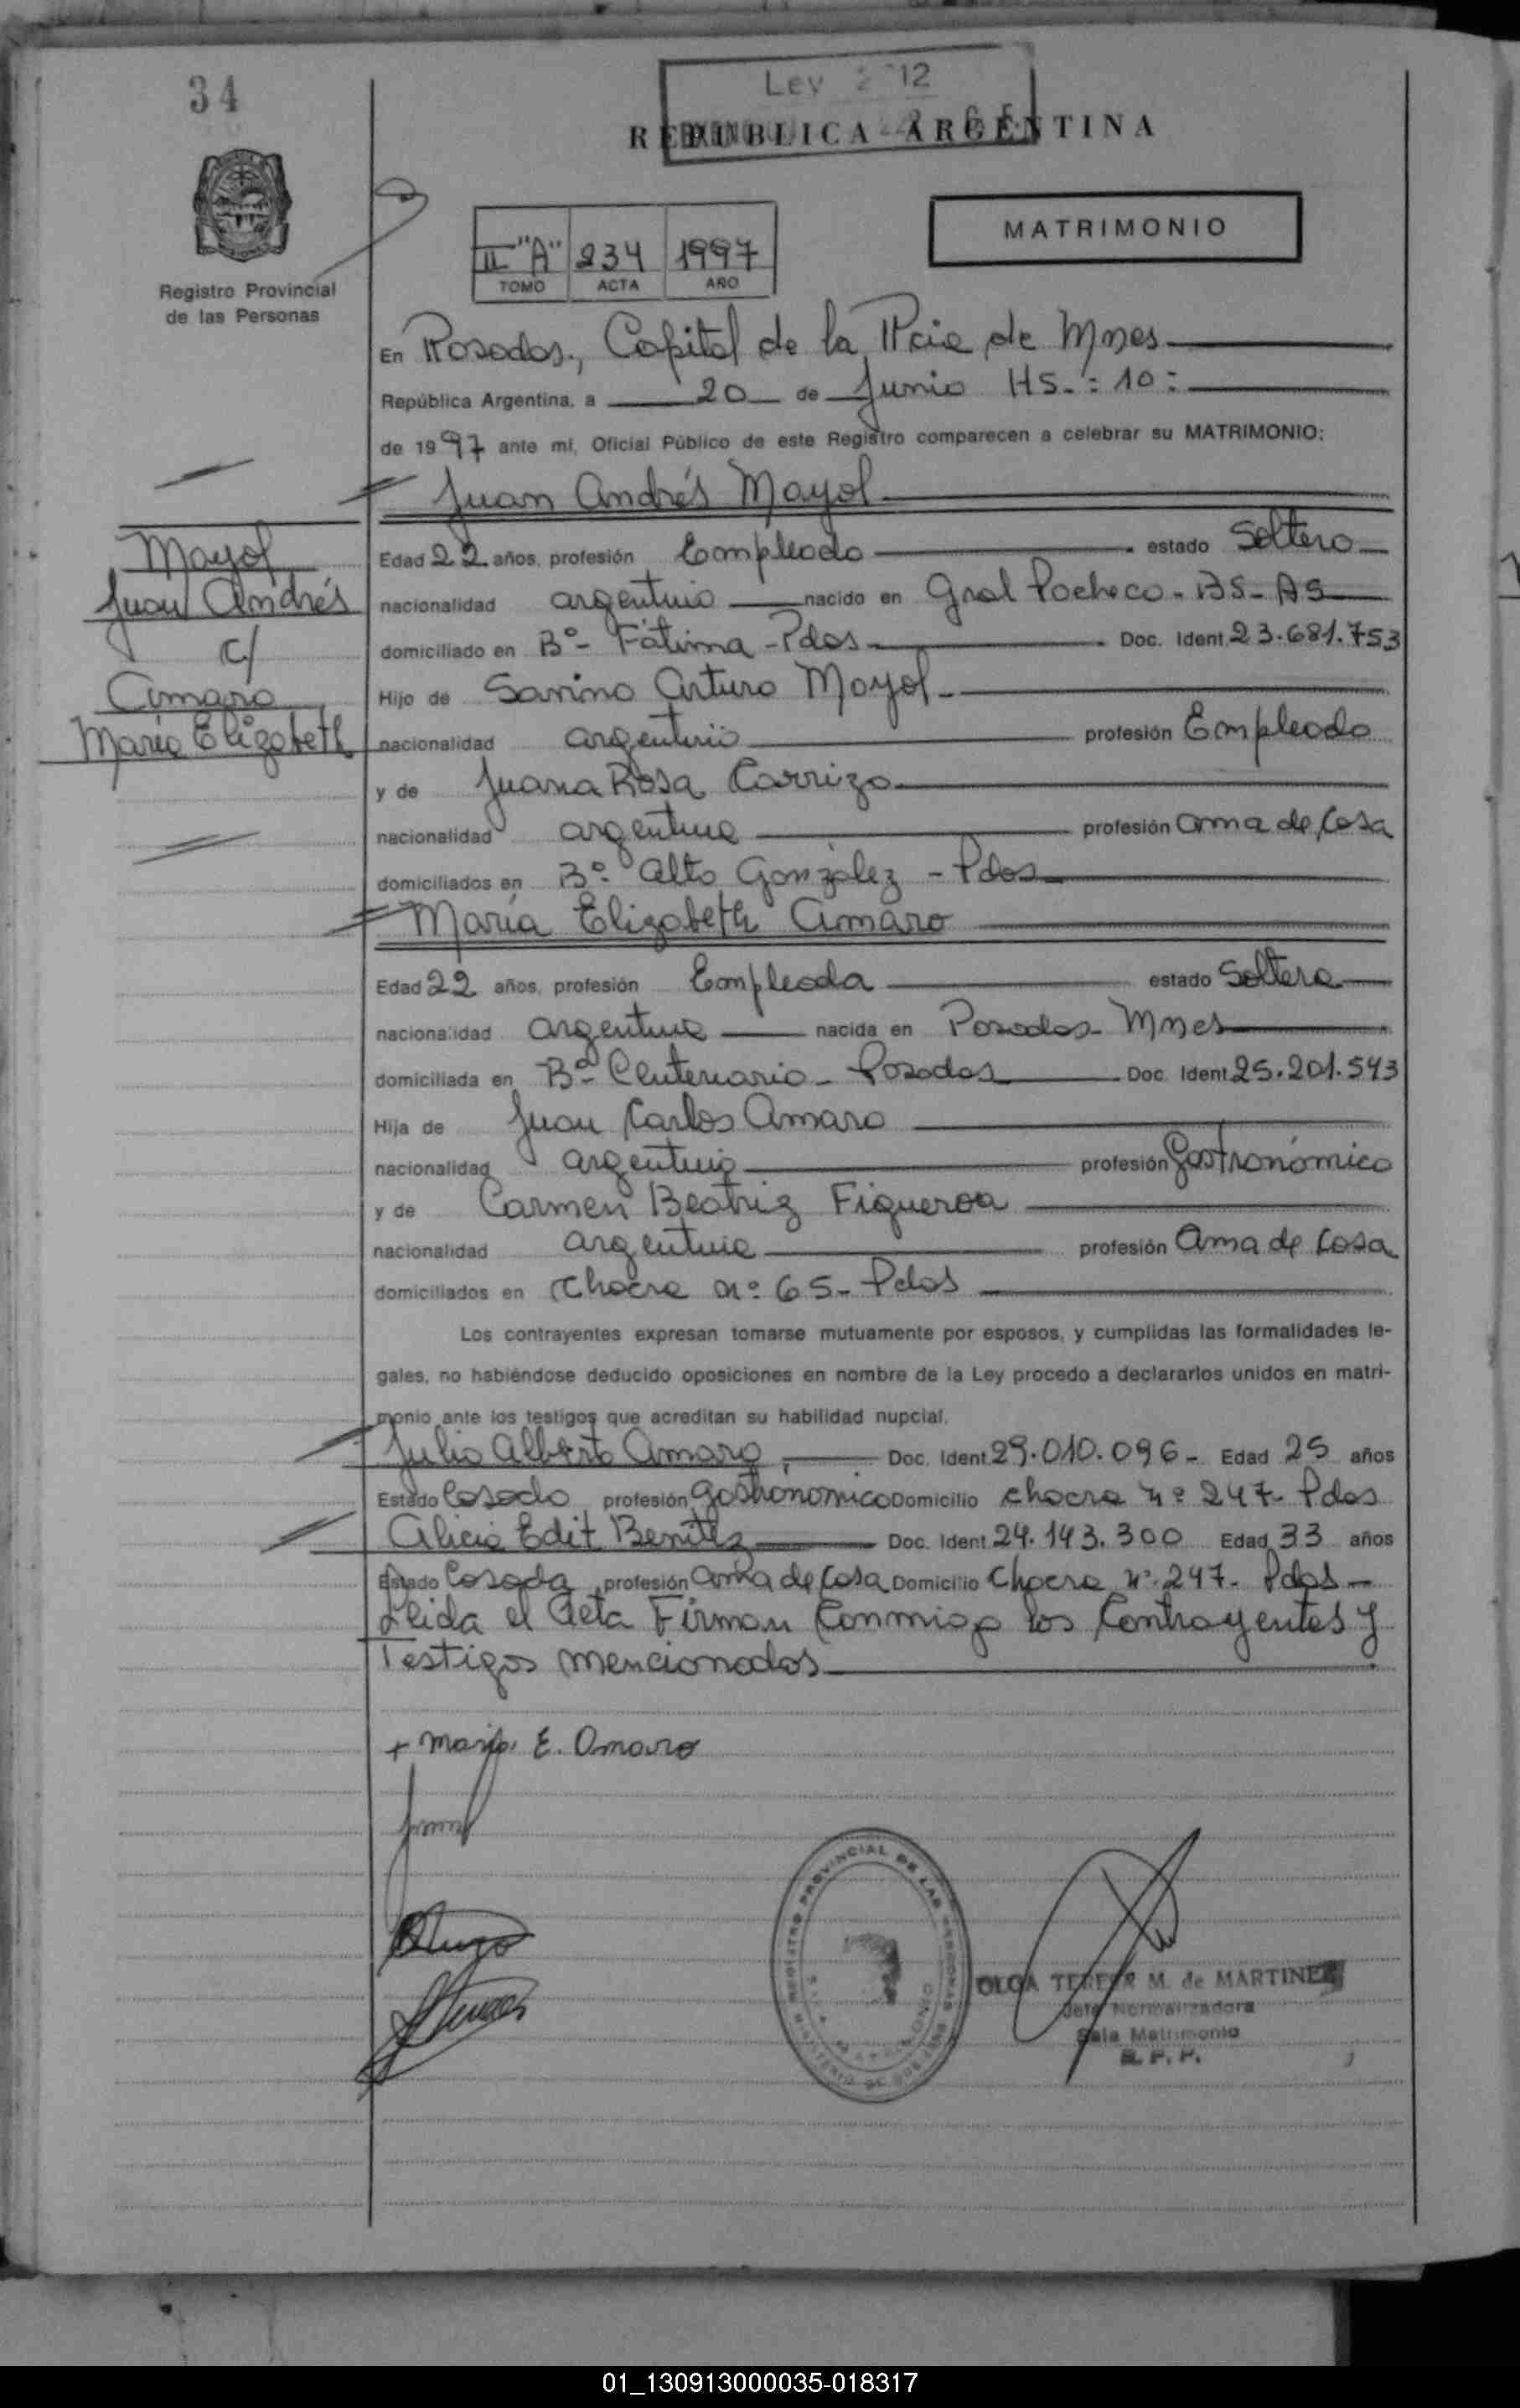 34
Ley 2 12
REPUBLICA ARGENTINA
MATRIMONIO
II "A" 234 1997
TOMO ACTA AÑO
Registro Provincial
de las Personas
En Posadas, Capital de la Pcia de Mnes
República Argentina, a 20 de Junio HS.=10=
de 1997 ante mi, Oficial Público de este Registro comparecen a celebrar su MATRIMONIO:
Juan Andrés Mayol
Mayol
Juan Andrés
c/
Amaro
María Elizabeth
Edad 22 años, profesión Empleado estado Soltero
nacionalidad argentino nacido en Gral Pacheco - BS - AS
domiciliado en Bº- Fátima - Pdas Doc. Ident. 23.681.753
Hijo de Sanino Arturo Mayol
nacionalidad argentino profesión Empleado
y de Juana Rosa Carrizo
nacionalidad argentina profesión ama de Casa
domiciliados en Bº- Alto González - Pdas
María Elizabeth Amaro
Edad 22 años, profesión Empleada estado Soltera
nacionalidad argentina nacida en Posadas - Mnes
domiciliada en Bº- Centenario - Posadas Doc. Ident. 25.201.543
Hija de Juan Carlos Amaro
nacionalidad argentino profesión Gastronómico
y de Carmen Beatriz Figueroa
nacionalidad argentina profesión Ama de Casa
domiciliados en Chacra nº 65 - Pdas
Los contrayentes expresan tomarse mutuamente por esposos, y cumplidas las formalidades le-
gales, no habiéndose deducido oposiciones en nombre de la Ley procedo a declararlos unidos en matri-
monio ante los testigos que acreditan su habilidad nupcial.
Julio Alberto Amaro Doc. Ident. 29.010.096 - Edad 25 años
Estado Casado profesión gastronomico Domicilio chacra nº 247 - Pdas
Alicia Edit Benitez Doc. Ident. 24.143.300 Edad 33 años
Estado Casada profesión ama de Casa Domicilio Chacra nº 247 - Pdas
Leida el Acta Firman Conmigo los Contrayentes y
Testigos mencionados
+ Maria E. Amaro
REGISTRO PROVINCIAL DE LAS PERSONAS
OLGA TERESA M. de MARTINEZ
Jefa Normalizadora
Sala Matrimonio
R. P. P.
01_130913000035-018317